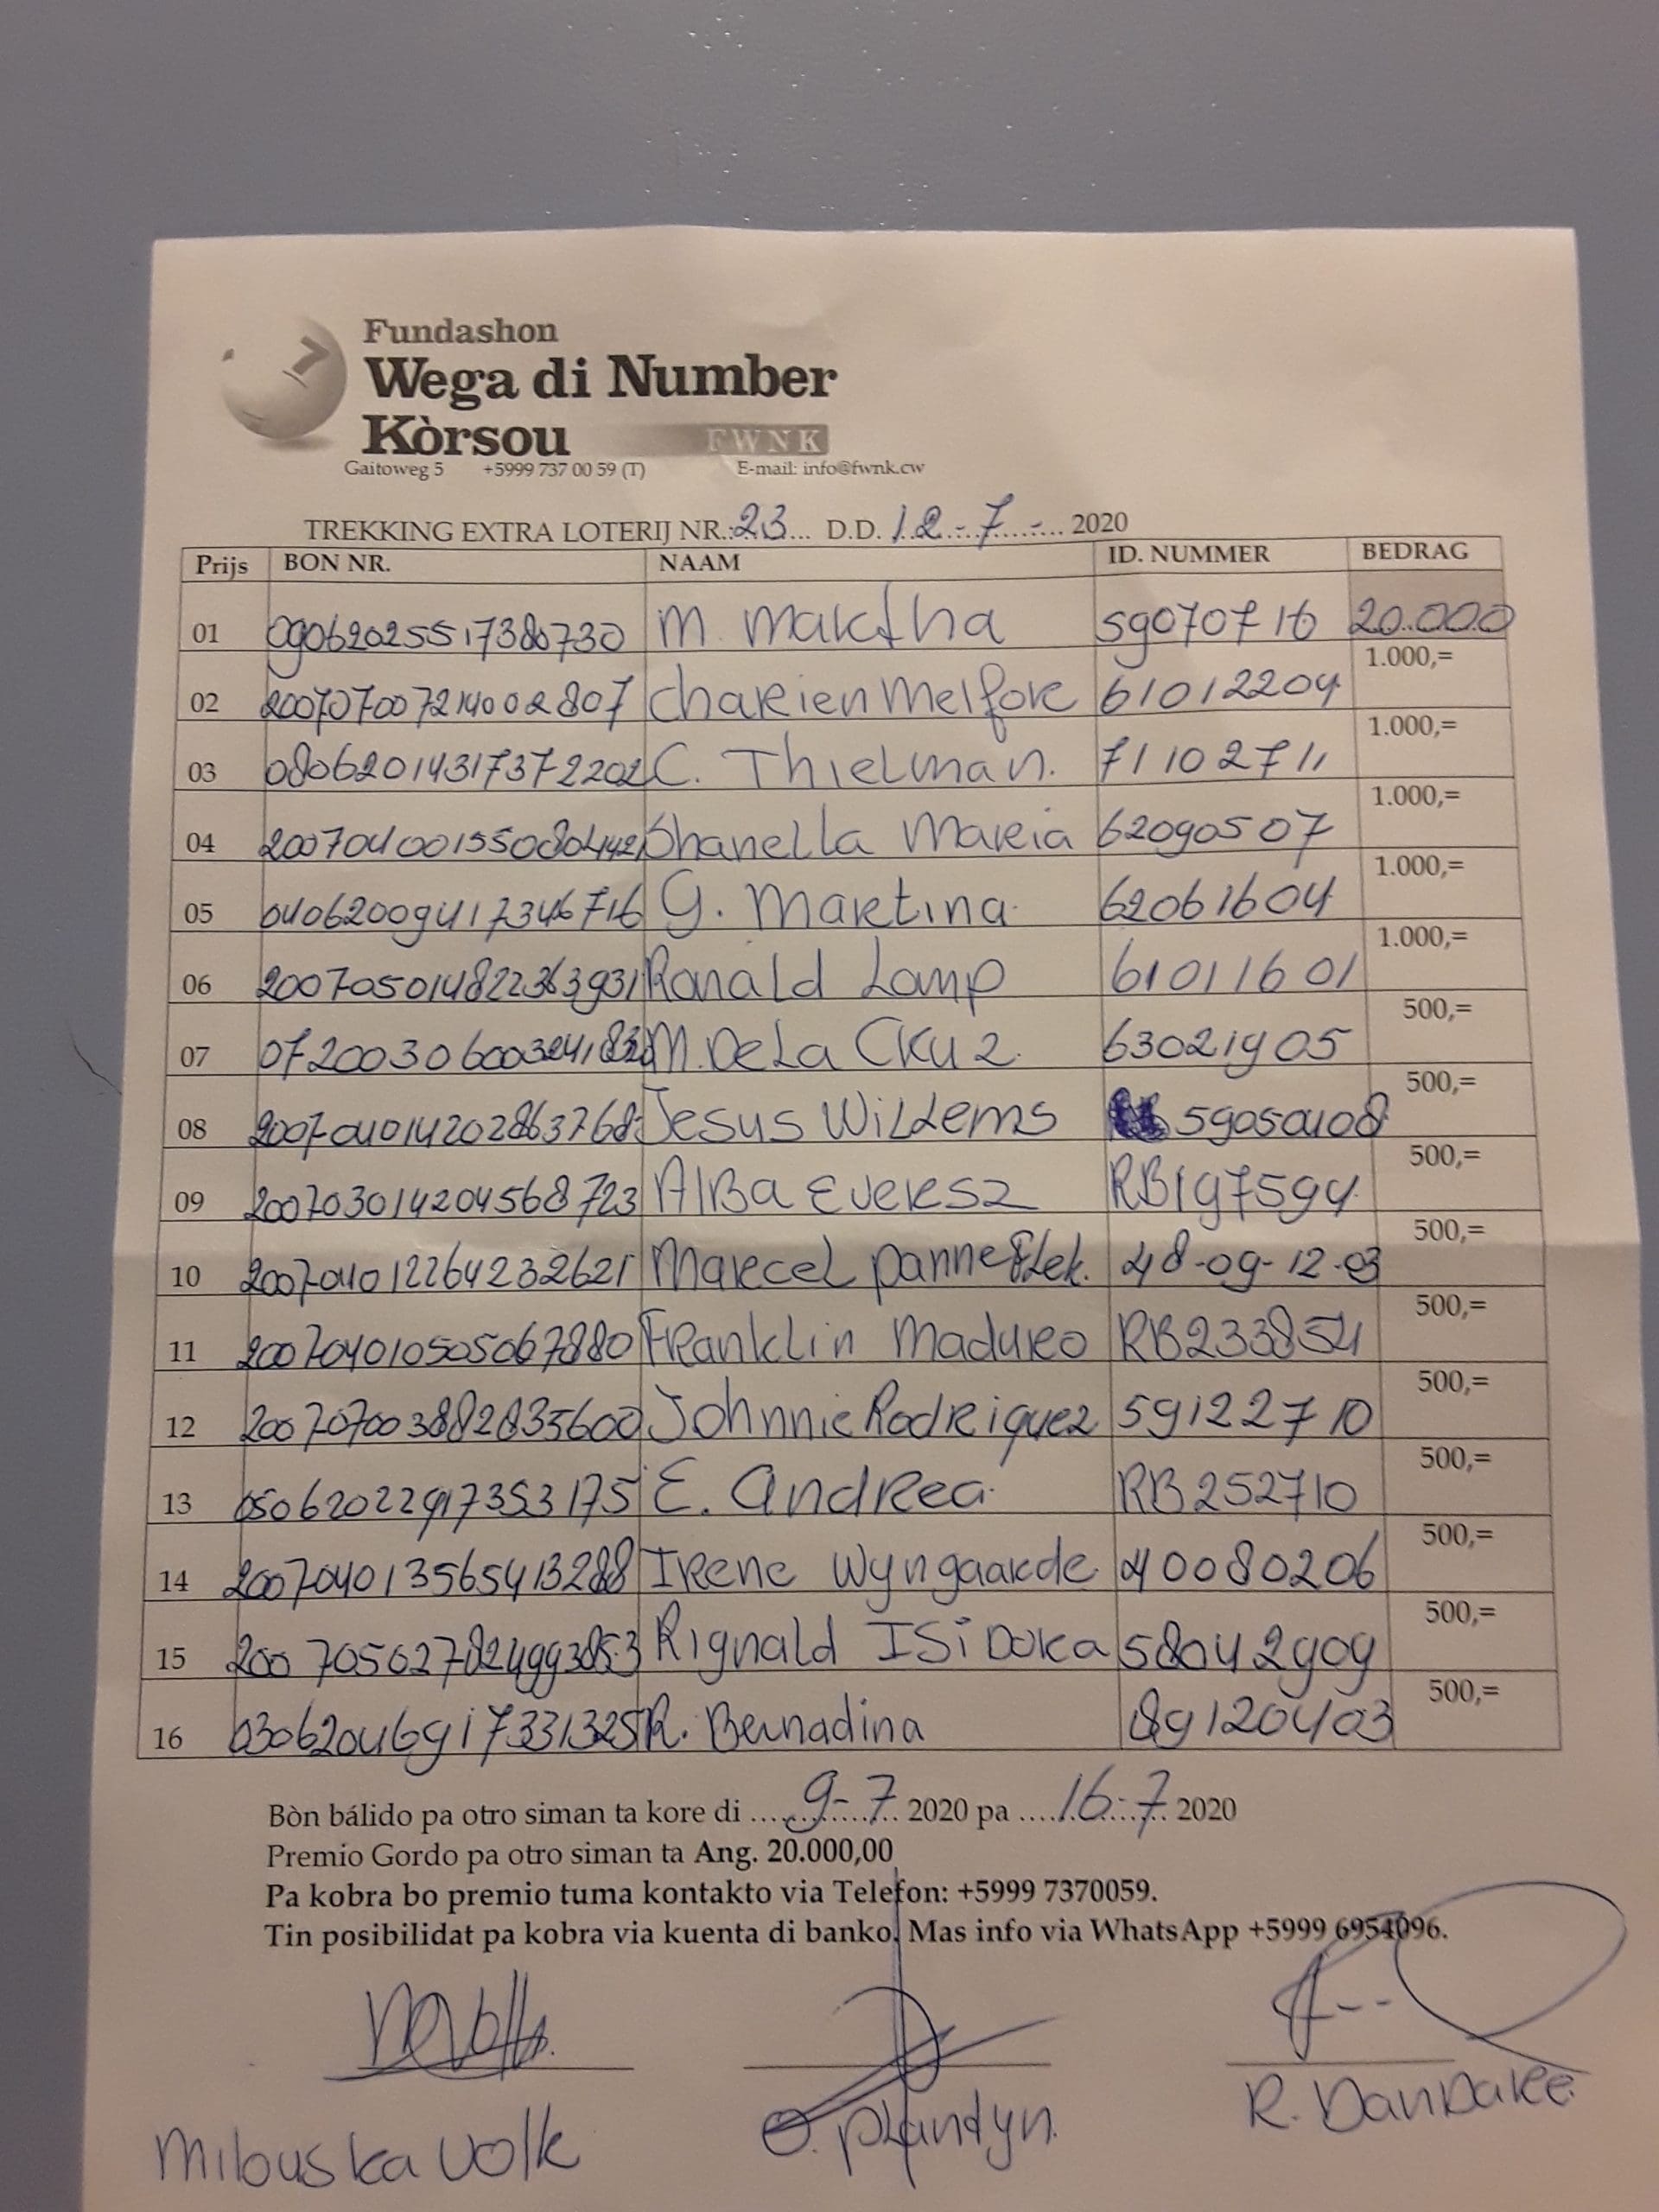 Fundashon
Wega di Number
Kòrsou FWNK
Gaitoweg 5 +5999 737 00 59 (T) E-mail: info@fwnk.cw
TREKKING EXTRA LOTERIJ NR.: 23 D.D. 12-7-2020
Prijs BON NR. NAAM ID. NUMMER BEDRAG
01 M. Martha 59070716 20.000
02 Charien Melfor 61012204 1.000,=
03 08062014317372202 C. Thielman. 71102711 1.000,=
04 Shanella Maria 62090507 1.000,=
05 04062009417346716 G. Martina 62061604 1.000,=
06 200705014822363931 Ronald Lamp 61011601 1.000,=
07 M. De La Cruz. 63021905 500,=
08 200704014202863768 Jesus Willems 59050408 500,=
09 200703014204568723 Alba Eversz RB197594 500,=
10 200704012264232621 Marcel panneflek. 48-09-12-03 500,=
11 200704010505067880 Franklin Maduro RB233854 500,=
12 200707003882835600 Johnnie Rodriquez 59122710 500,=
13 05062022917353175 E. Andrea RB252710 500,=
14 200704013565413288 Irene Wyngaarde 40080206 500,=
15 Rignald ISiDora 58042909 500,=
16 03062046917331325 R. Bernadina 500,=
Bòn bálido pa otro siman ta kore di 9-7 2020 pa 16-7 2020
Premio Gordo pa otro siman ta Ang. 20.000,00
Pa kobra bo premio tuma kontakto via Telefon: +5999 7370059.
Tin posibilidat pa kobra via kuenta di banko. Mas info via WhatsApp +5999 6954096.
Milouska Volk O. Plantyn. R. DanDare